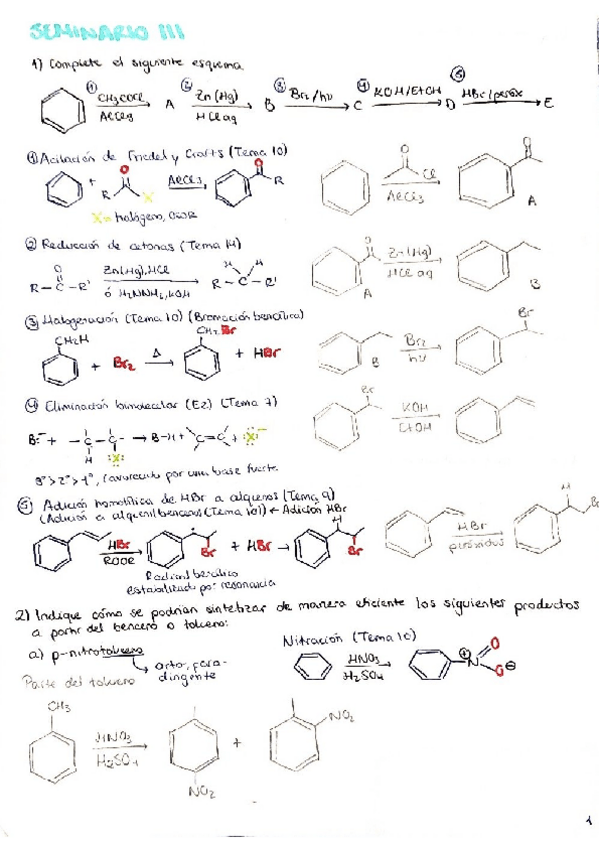 SEMINARIO III
1) Complete el siguiente esquema
① CH3COCl AlCl3 A ② Zn(Hg) HCl aq B ③ Br2/hν C ④ KOH/EtOH D ⑤ HBr/peróx E
① Acilación de Friedel y Crafts (Tema 10)
+ R O X AlCl3 O R
X = halógeno, OCOR
O Cl AlCl3 O A
② Reducción de cetonas (Tema 14)
R-C-R' O Zn(Hg), HCl ó H2NNH2, KOH H H R-C-R'
O A Zn(Hg) HCl aq B
③ Halogenación (Tema 10) (Bromación bencílica)
CH2H + Br2 Δ CH2Br + HBr
B Br2 hν Br
④ Eliminación bimolecular (E2) (Tema 7)
B:⁻ + -C-C- H X → B-H + C=C + :X:⁻
Br KOH EtOH
3º > 2º > 1º, favorecido por una base fuerte
⑤ Adición homolítica de HBr a alquenos (Tema 9)
(Adición a alquenilbencenos (Tema 10)) ← Adición HBr
HBr ROOR Br + HBr → H Br
HBr peróxidos H Br
Radical bencílico
estabilizado por resonancia
2) Indique cómo se podrían sintetizar de manera eficiente los siguientes productos
a partir del benceno o tolueno:
a) p-nitrotolueno
orto, para-
dirigente
Nitración (Tema 10)
HNO3 H2SO4 N O O
Parte del tolueno
CH3 HNO3 H2SO4 NO2 + NO2
1